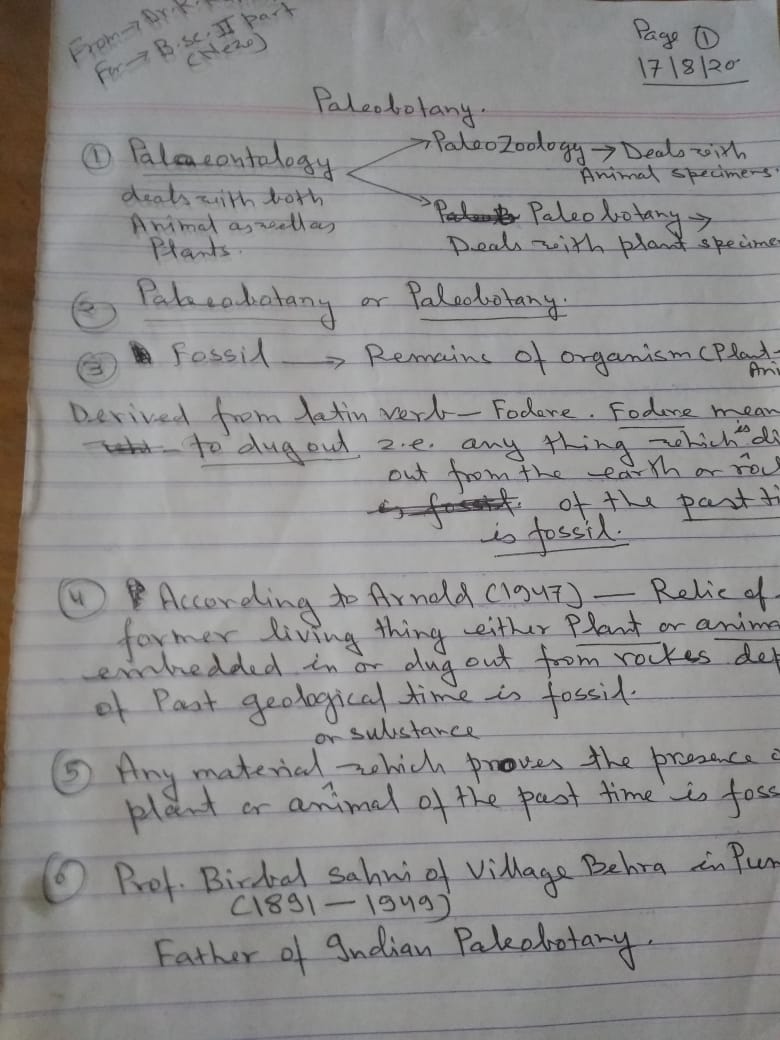 From → Dr. K.
For → B.sc. II part
Page ①
17/8/20
Paleobotany.
① Palaeontalogy → PaleoZoology → Deals with
Animal specimens.
deals with both
Animal as well as
Plants.
→ Paleobotany →
Deals with plant specime
② Palaeobotany or Paleobotany.
③ Fossil → Remains of organism (Plant-
Ani
Derived from latin verb – Fodere. Fodere mean
to dug out i.e. any thing which is di
out from the earth or roc
of the past ti
is fossil.
④ According to Arnold (1947) – Relic of
former living thing either Plant or anima
embedded in or dug out from rockes dep
of Past geological time is fossil.
or substance
⑤ Any material which proves the presence o
plant or animal of the past time is foss
⑥ Prof. Birbal Sahni of Village Behra in Pun
(1891 – 1949)
Father of Indian Paleobotany.